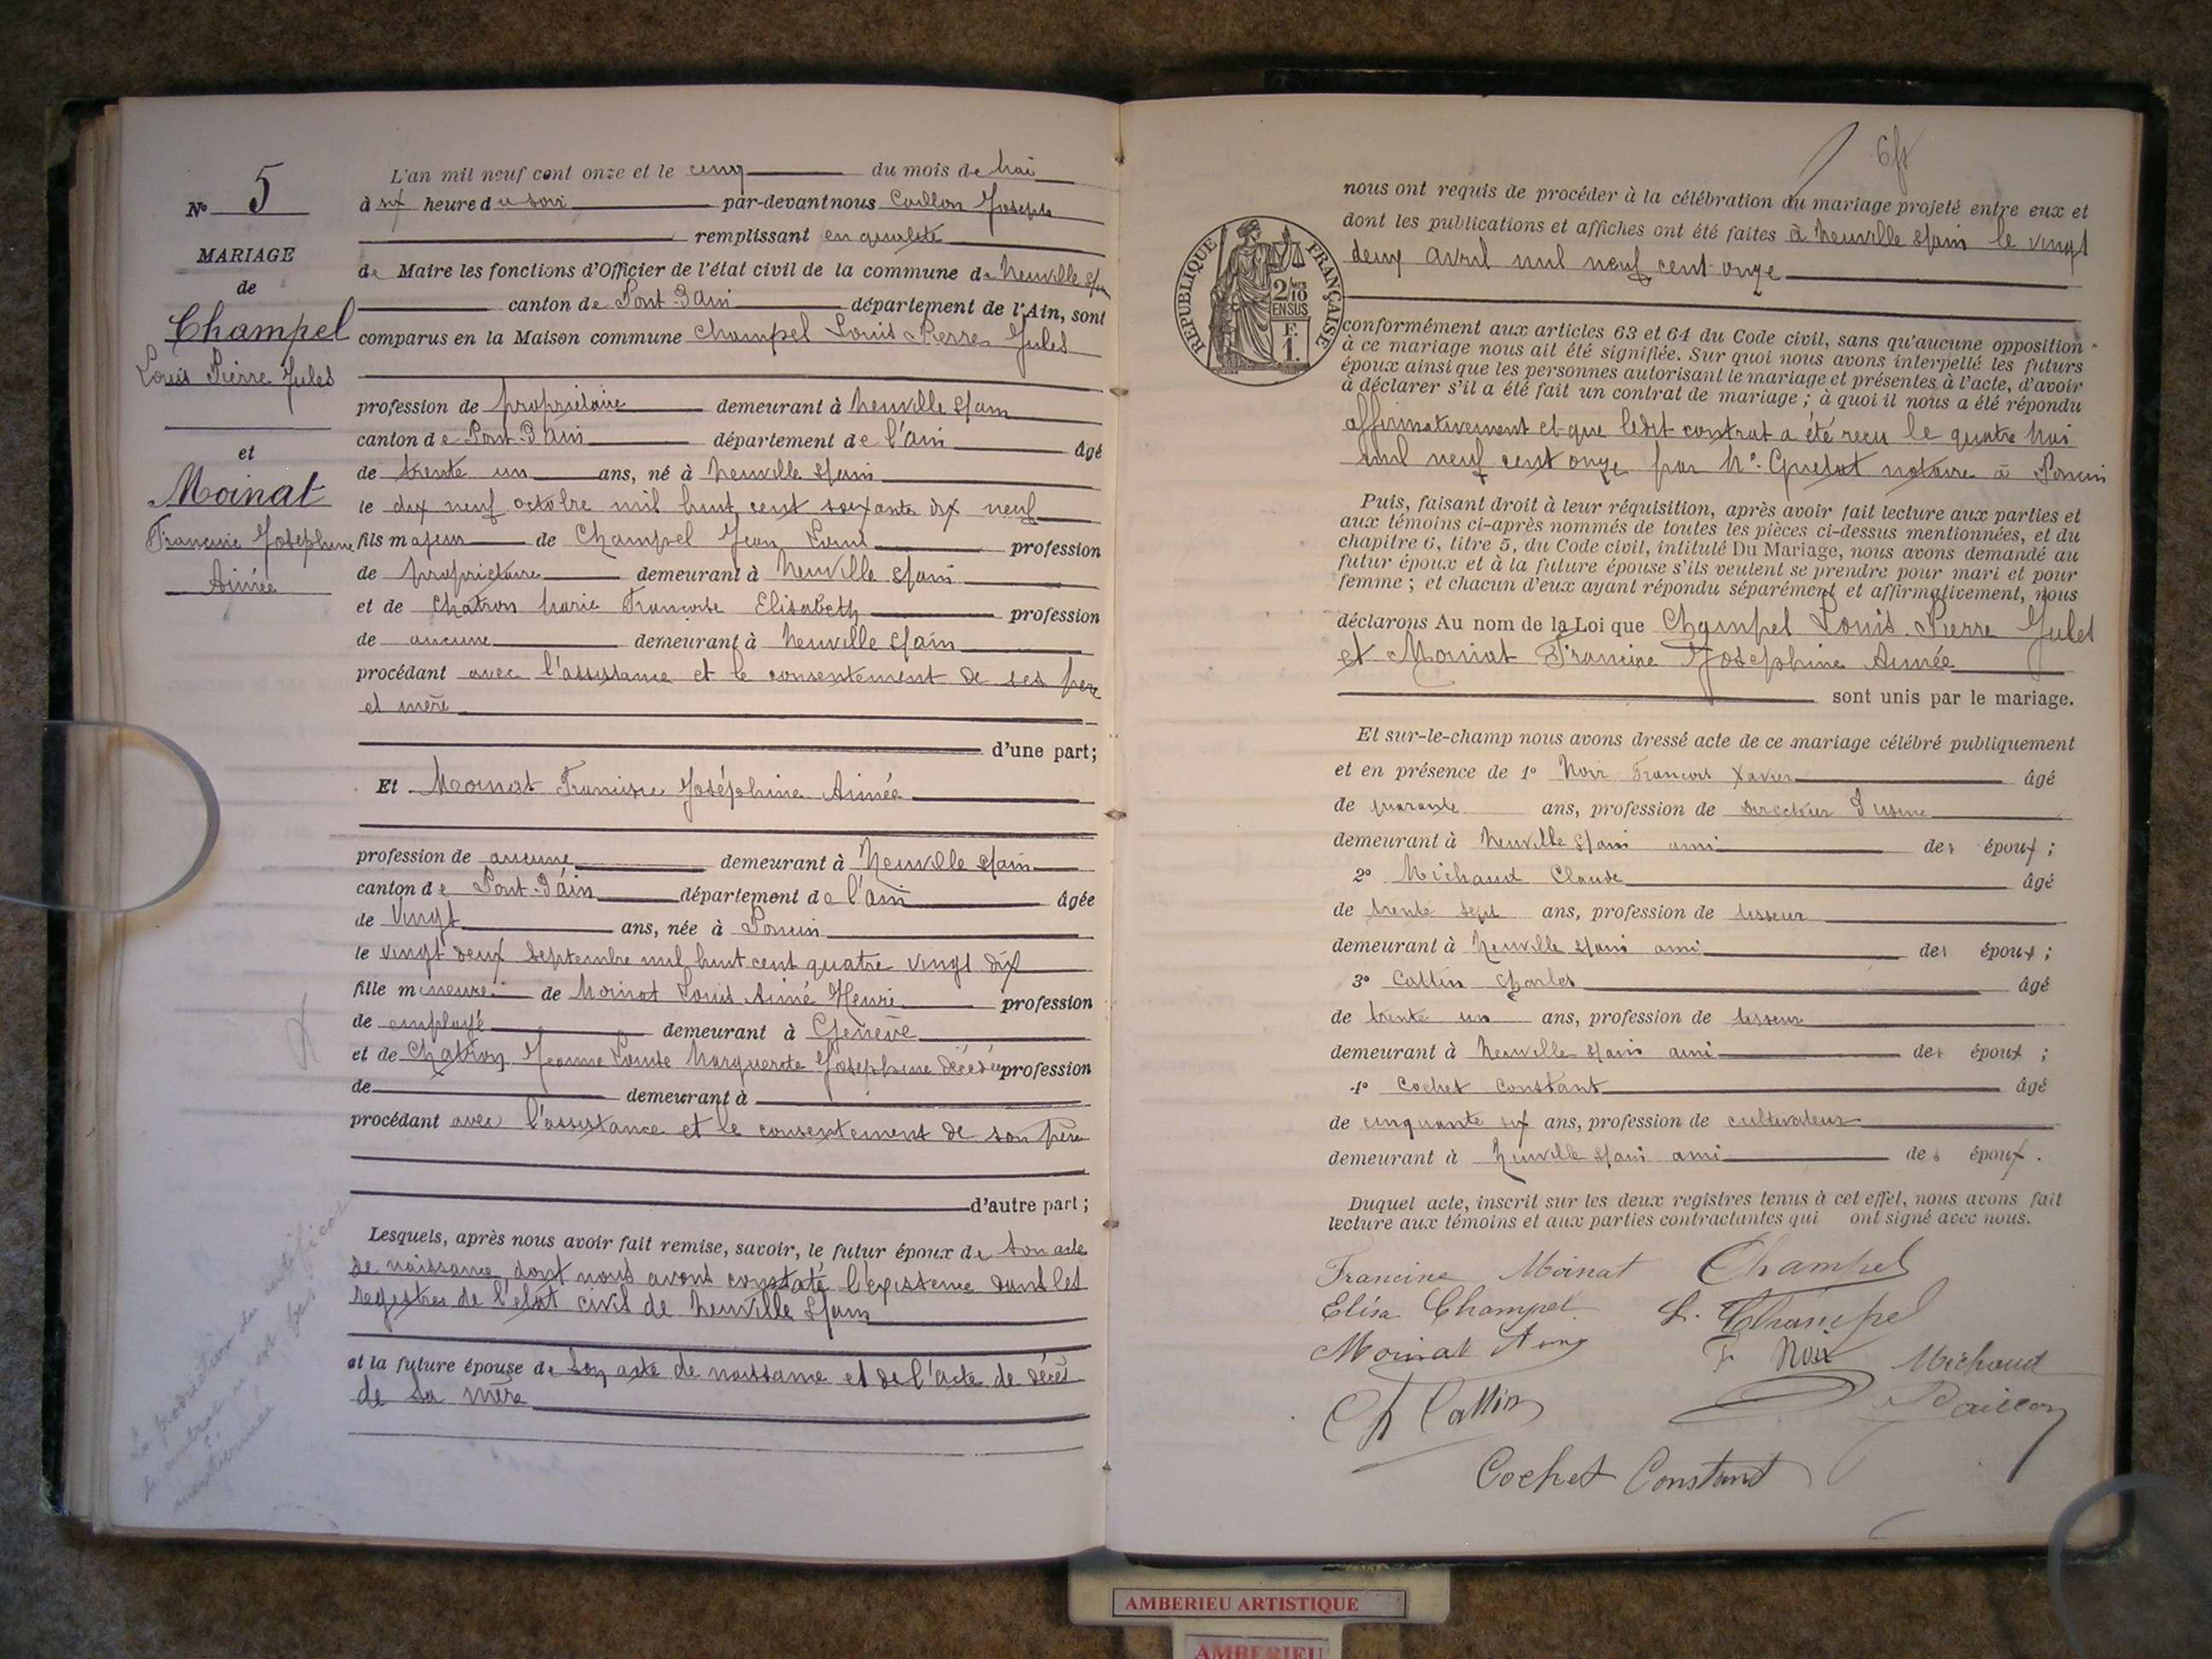 N° 5
MARIAGE
de
Champel
Louis Pierre Jules
et
Moinat
Francine Joséphine
Aimée
L'an mil neuf cent onze et le cinq du mois de Mai
à six heure du soir par-devant nous Caillon Joseph
remplissant en qualité
de Maire les fonctions d'Officier de l'état civil de la commune de Neuville s/ain
canton de Pont-d'ain département de l'Ain, sont
comparus en la Maison commune Champel Louis Pierre Jules
profession de propriétaire demeurant à Neuville s/ain
canton de Pont-d'ain département de l'ain âgé
de trente un ans, né à Neuville s/ain
le dix neuf octobre mil huit cent soixante dix neuf
fils majeur de Champel Jean Louis profession
de propriétaire demeurant à Neuville s/ain
et de Chatron Marie Françoise Elisabeth profession
de aucune demeurant à Neuville s/ain
procédant avec l'assistance et le consentement de ses père
et mère
d'une part;
Et Moinat Francine Joséphine Aimée
profession de aucune demeurant à Neuville s/ain
canton de Pont-d'ain département de l'ain âgée
de vingt ans, née à Poncin
le vingt deux septembre mil huit cent quatre vingt dix
fille mineure de Moinat Louis Aimé Henri profession
de employé demeurant à Genève
et de Chatron Jeanne Louise Marguerite Joséphine décédée profession
de demeurant à
procédant avec l'assistance et le consentement de son père
d'autre part;
Lesquels, après nous avoir fait remise, savoir, le futur époux de son acte
de naissance dont nous avons constaté l'existence dans les
registres de l'état civil de Neuville s/ain
et la future épouse de son acte de naissance et de l'acte de décès
de sa mère
La production du certificat
de contrat n'est pas
mentionnée
nous ont requis de procéder à la célébration du mariage projeté entre eux et
dont les publications et affiches ont été faites à Neuville s/ain le vingt
deux avril mil neuf cent onze
RÉPUBLIQUE FRANÇAISE
2/10
EN SUS
F.
1.
conformément aux articles 63 et 64 du Code civil, sans qu'aucune opposition
à ce mariage nous ait été signifiée. Sur quoi nous avons interpellé les futurs
époux ainsi que les personnes autorisant le mariage et présentes à l'acte, d'avoir
à déclarer s'il a été fait un contrat de mariage; à quoi il nous a été répondu
affirmativement et que ledit contrat a été reçu le quatre Mai
mil neuf cent onze par Me notaire à Poncin
Puis, faisant droit à leur réquisition, après avoir fait lecture aux parties et
aux témoins ci-après nommés de toutes les pièces ci-dessus mentionnées, et du
chapitre 6, titre 5, du Code civil, intitulé Du Mariage, nous avons demandé au
futur époux et à la future épouse s'ils veulent se prendre pour mari et pour
femme; et chacun d'eux ayant répondu séparément et affirmativement, nous
déclarons Au nom de la Loi que Champel Louis Pierre Jules
et Moinat Francine Joséphine Aimée
sont unis par le mariage.
Et sur-le-champ nous avons dressé acte de ce mariage célébré publiquement
et en présence de 1° Noir François Xavier âgé
de quarante ans, profession de directeur d'usine
demeurant à Neuville s/ain ami des époux;
2° Michaud Claude âgé
de trente sept ans, profession de tisseur
demeurant à Neuville s/ain ami des époux;
3° Cattin Charles âgé
de trente un ans, profession de tisseur
demeurant à Neuville s/ain ami des époux;
4° Cochet Constant âgé
de cinquante six ans, profession de cultivateur
demeurant à Neuville s/ain ami des époux.
Duquel acte, inscrit sur les deux registres tenus à cet effet, nous avons fait
lecture aux témoins et aux parties contractantes qui ont signé avec nous.
Francine Moinat Champel
Elisa Champel L. Champel
Moinat Aimé F. Noir Michaud
Ch Cattin Caillon
Cochet Constant
AMBERIEU ARTISTIQUE
AMBERIEU